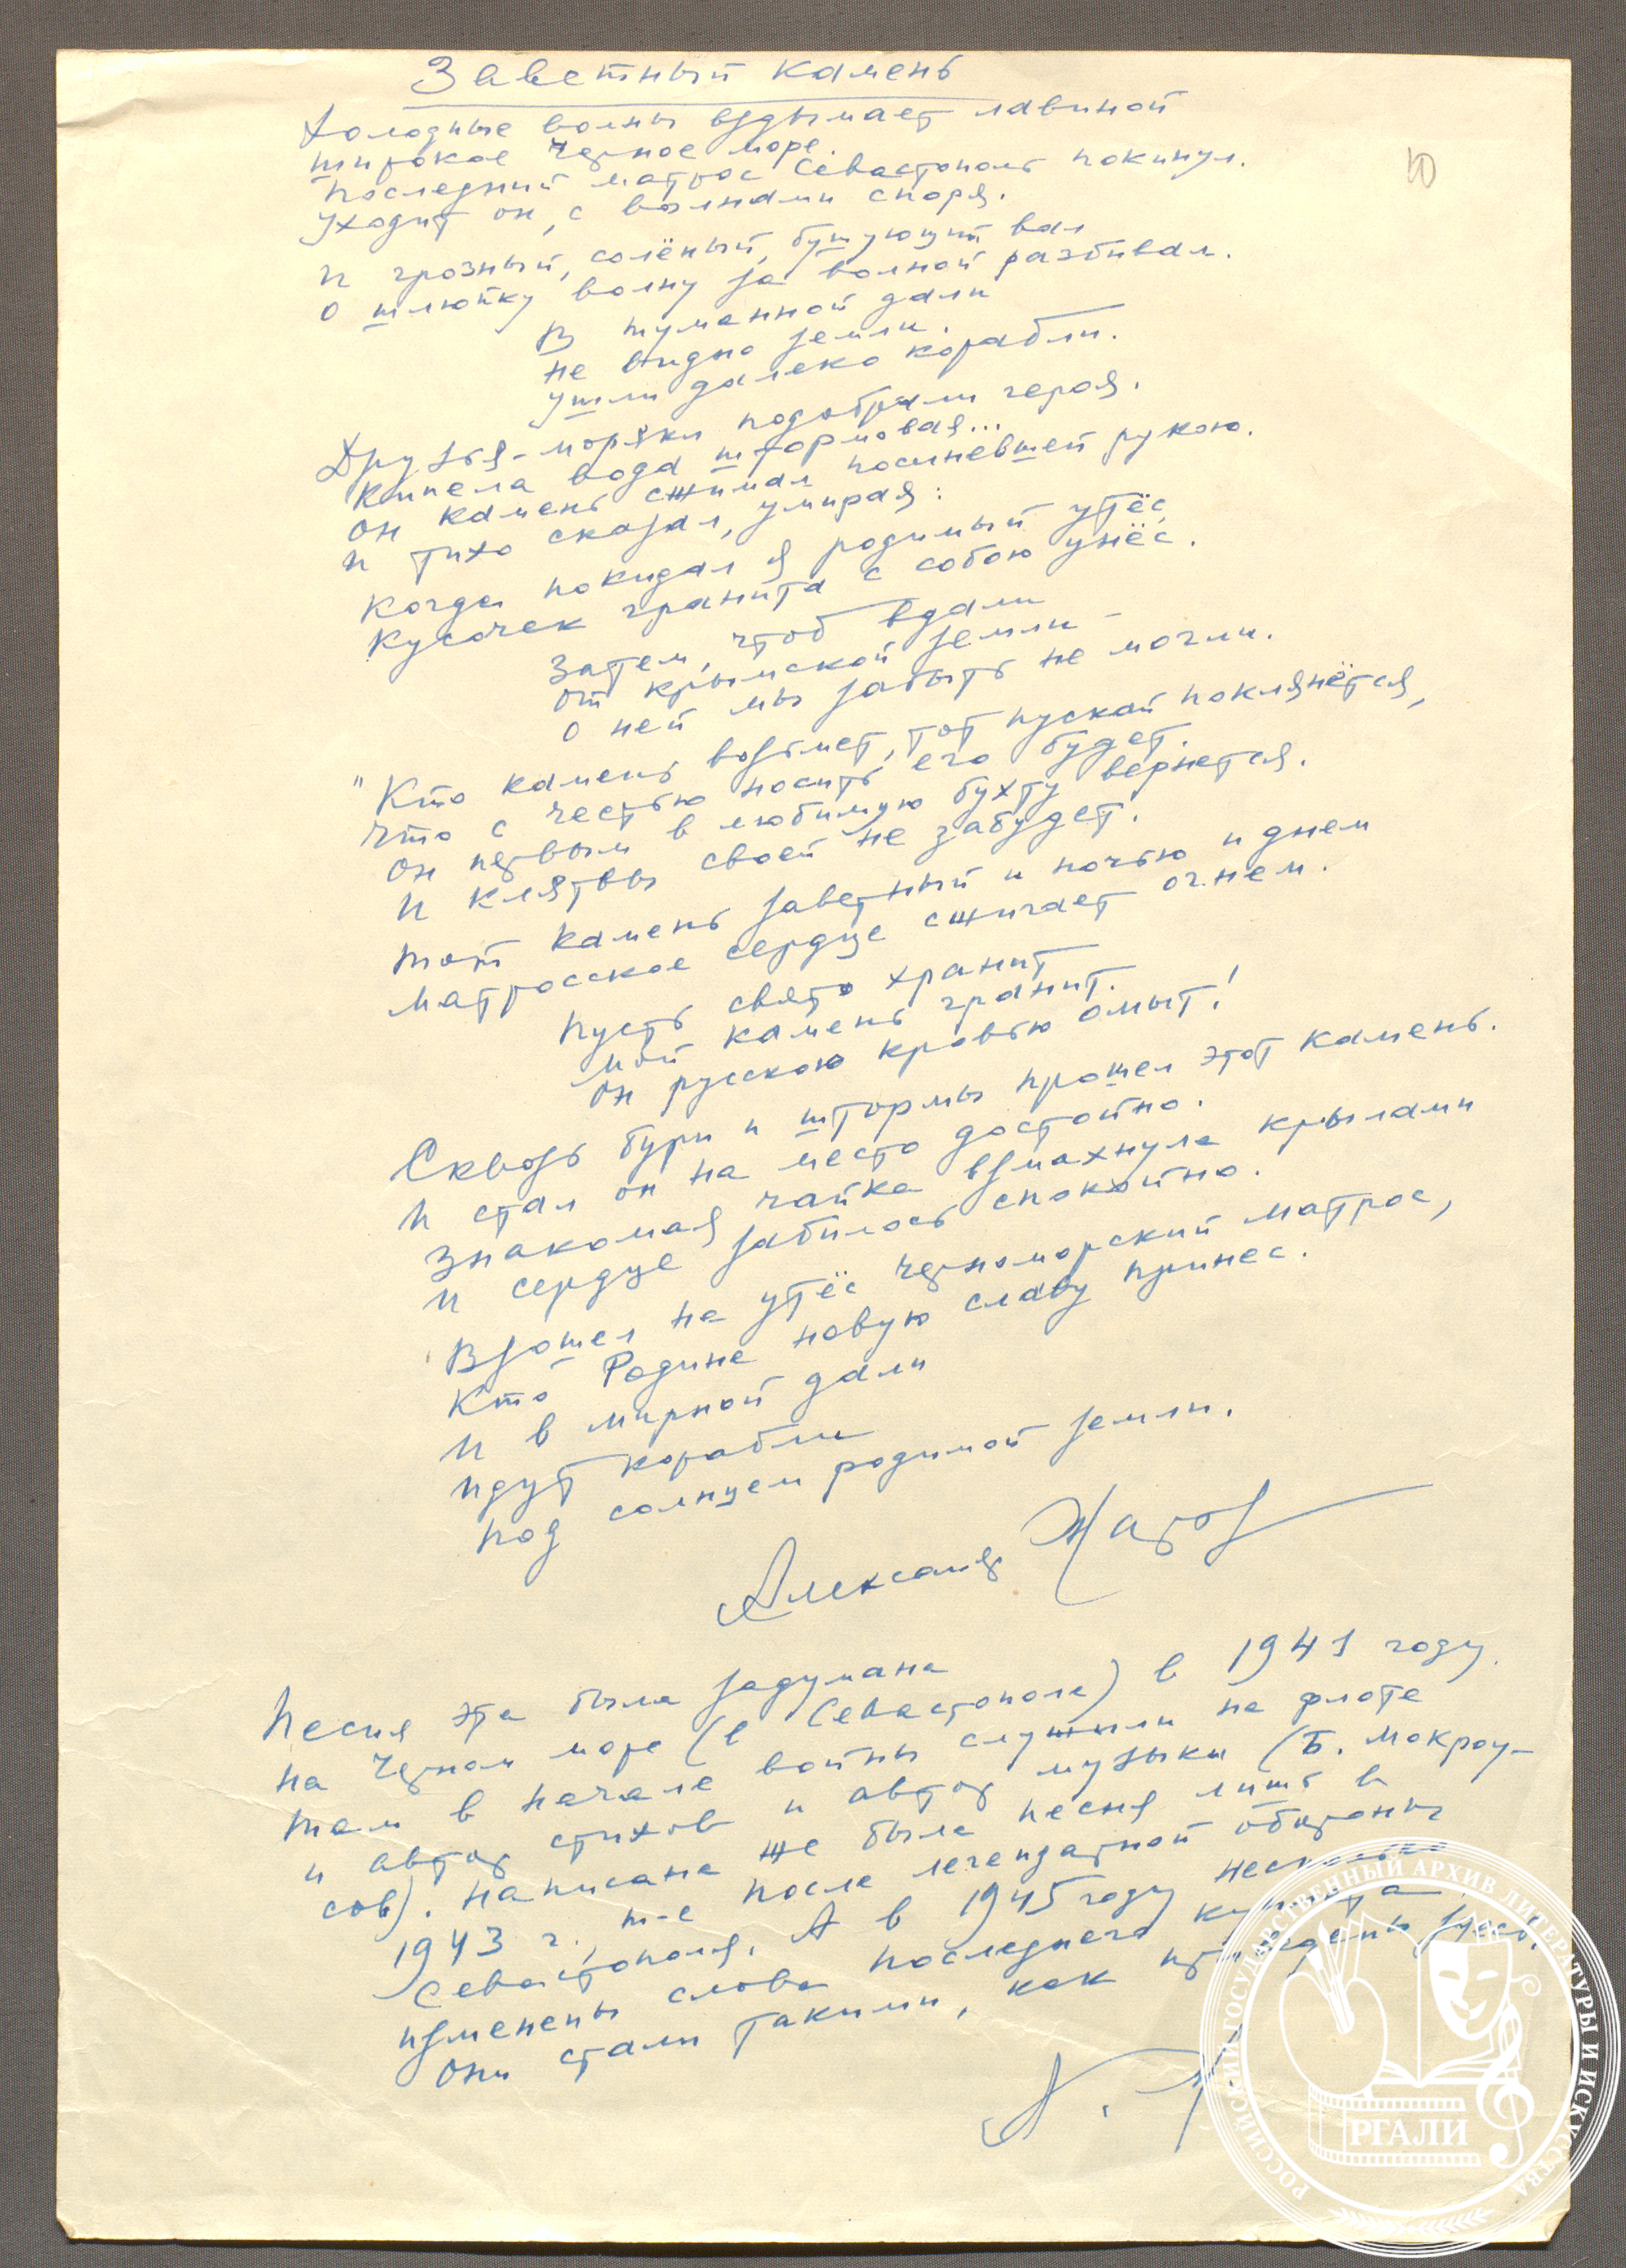 Заветный камень
10
Холодные волны вздымает лавиной
широкое Черное море.
Последний матрос Севастополь покинул.
Уходит он, с волнами споря.
И грозный, солёный, бушующий вал
О шлюпку волну за волной разбивал.
В туманной дали
не видно земли.
Ушли далеко корабли.
Друзья-моряки подобрали героя.
Кипела вода штормовая...
Он камень сжимал посиневшей рукою.
И тихо сказал, умирая:
Когда покидал я родимый утёс,
Кусочек гранита с собою унёс.
Затем, чтоб вдали
От крымской земли –
О ней мы забыть не могли.
"Кто камень возьмет, тот пускай поклянётся,
Что с честью носить его будет.
Он первым в любимую бухту вернется.
И клятвы своей не забудет.
Тот камень заветный и ночью и днем
Матросское сердце сжигает огнем.
Пусть свято хранит
Мой камень гранит.
Он русскою кровью омыт!
Сквозь бури и штормы прошел этот камень.
И стал он на место достойно.
Знакомая чайка взмахнула крылами
И сердце забилось спокойно.
Взошел на утёс черноморский матрос,
Кто Родине новую славу принес.
И в мирной дали
идут корабли
под солнцем родимой земли.
Александр Жаров
Песня эта была задумана
на Черном море (в Севастополе) в 1941 году.
Там в начале войны служили на флоте
и автор стихов и автор музыки (Б. Мокроу-
сов). Написана же была песня лишь в
1943 г., т-е после легендарной обороны
Севастополя. А в 1945 году несколько
изменены слова последнего куплета.
Они стали такими, как приведены здесь.
А. Ж.
РОССИЙСКИЙ ГОСУДАРСТВЕННЫЙ АРХИВ ЛИТЕРАТУРЫ И ИСКУССТВА
РГАЛИ